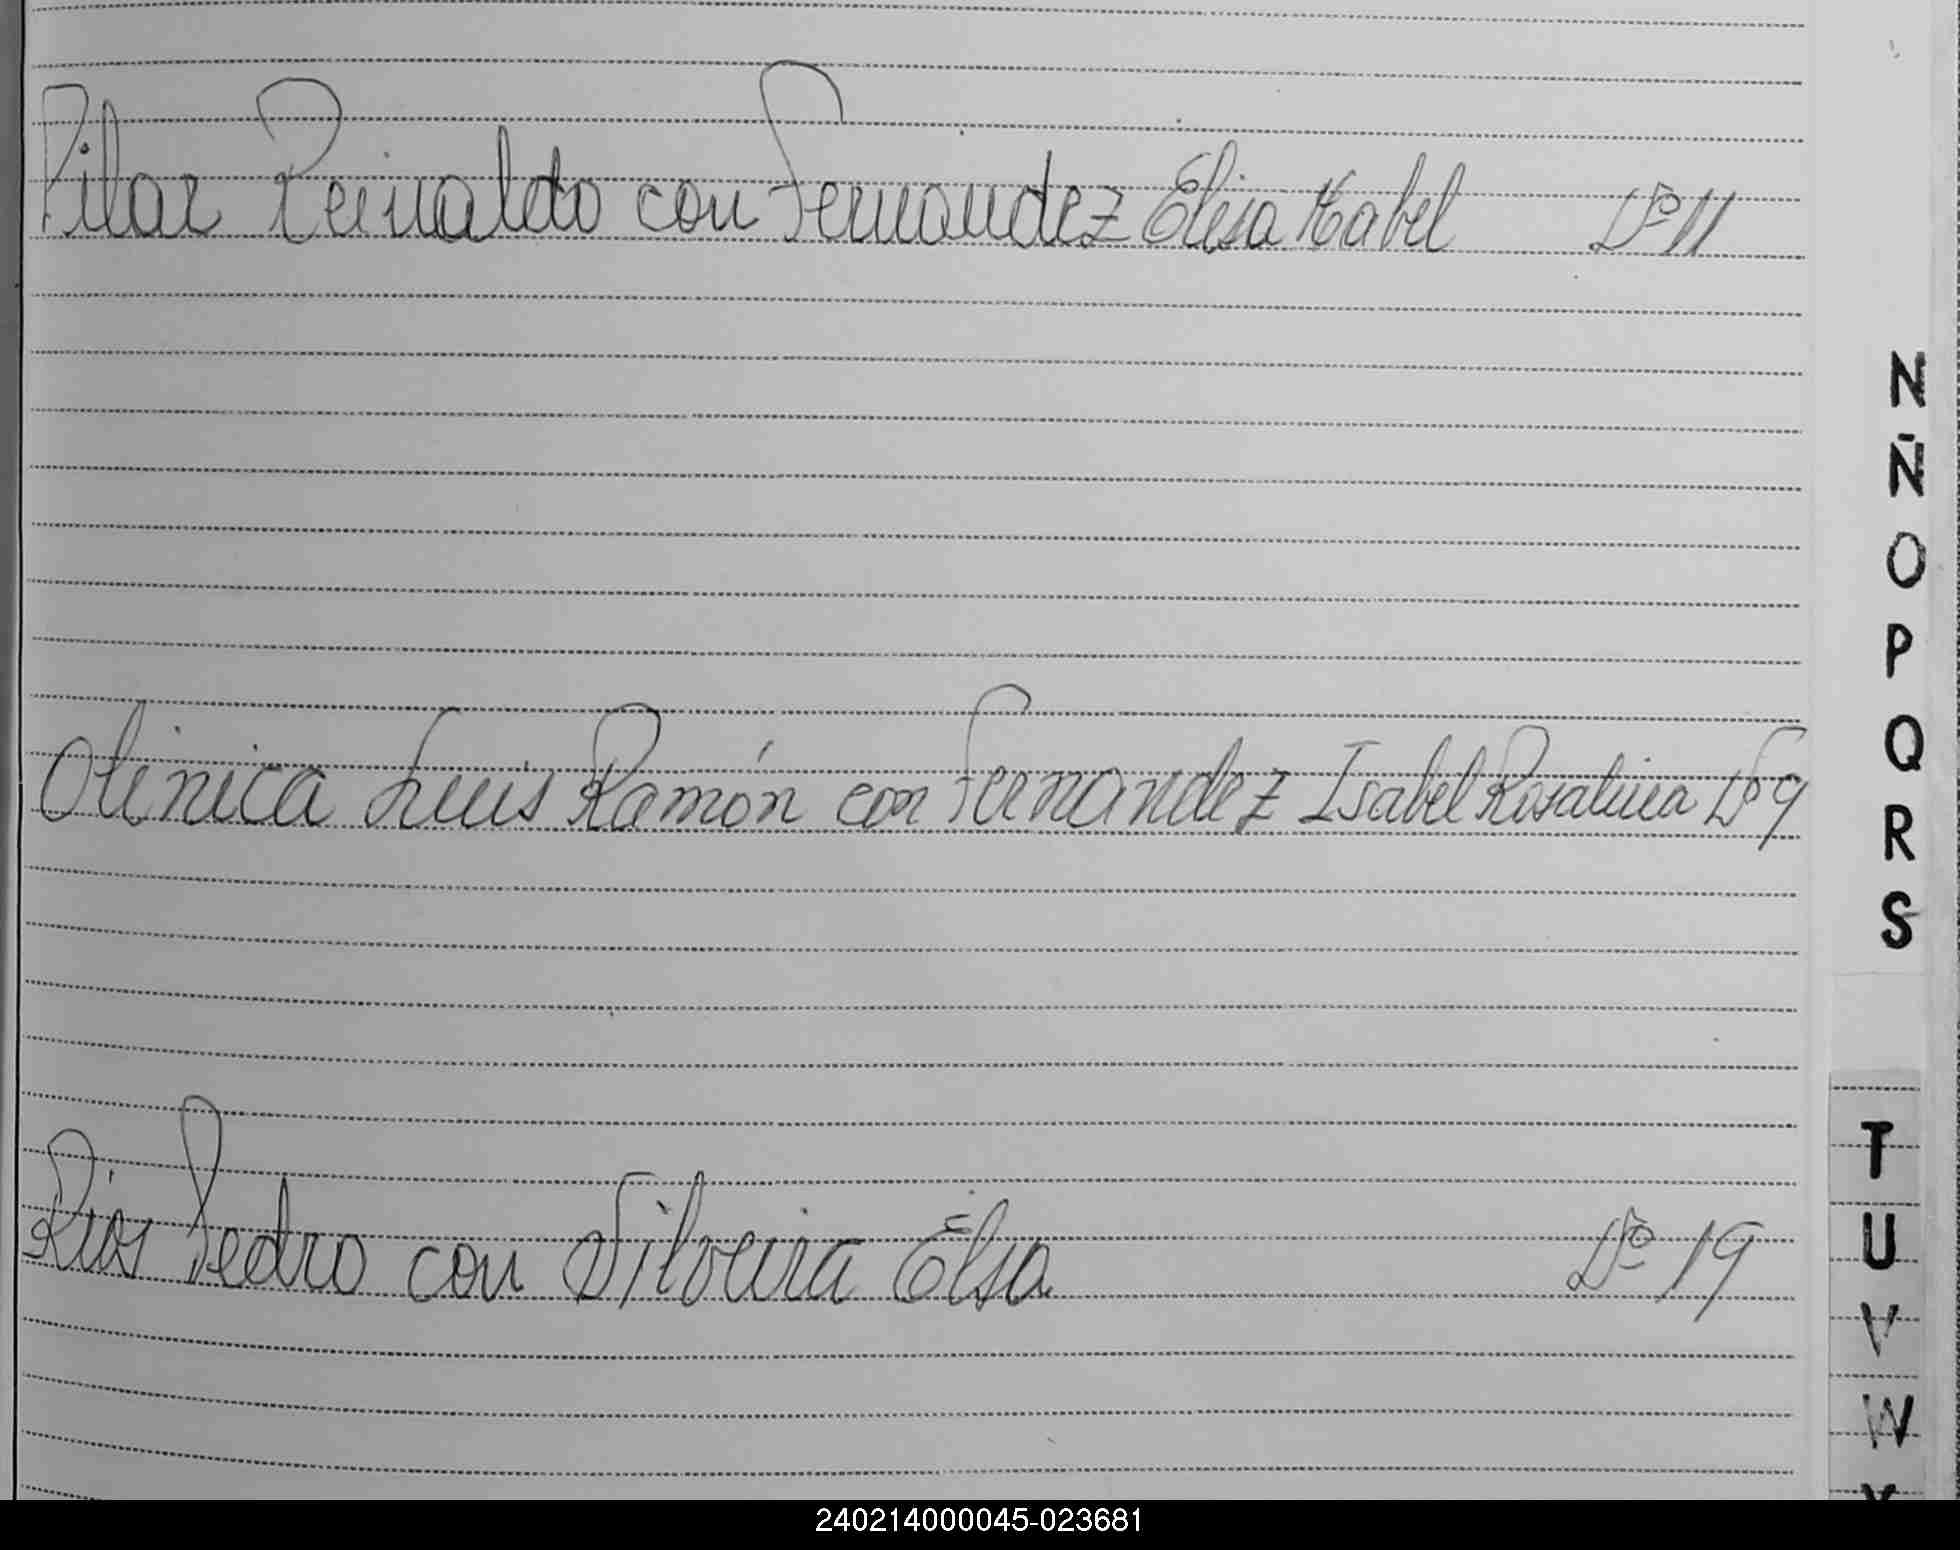 Pilar Reinaldo con Fernandez Elisa Mabel Nº 11
Olinica Luis Ramón con Fernandez Isabel Rosalina Nº 9
Ríos Pedro con Silveira Elsa Nº 19
N
Ñ
O
P
Q
R
S
T
U
V
W
240214000045-023681